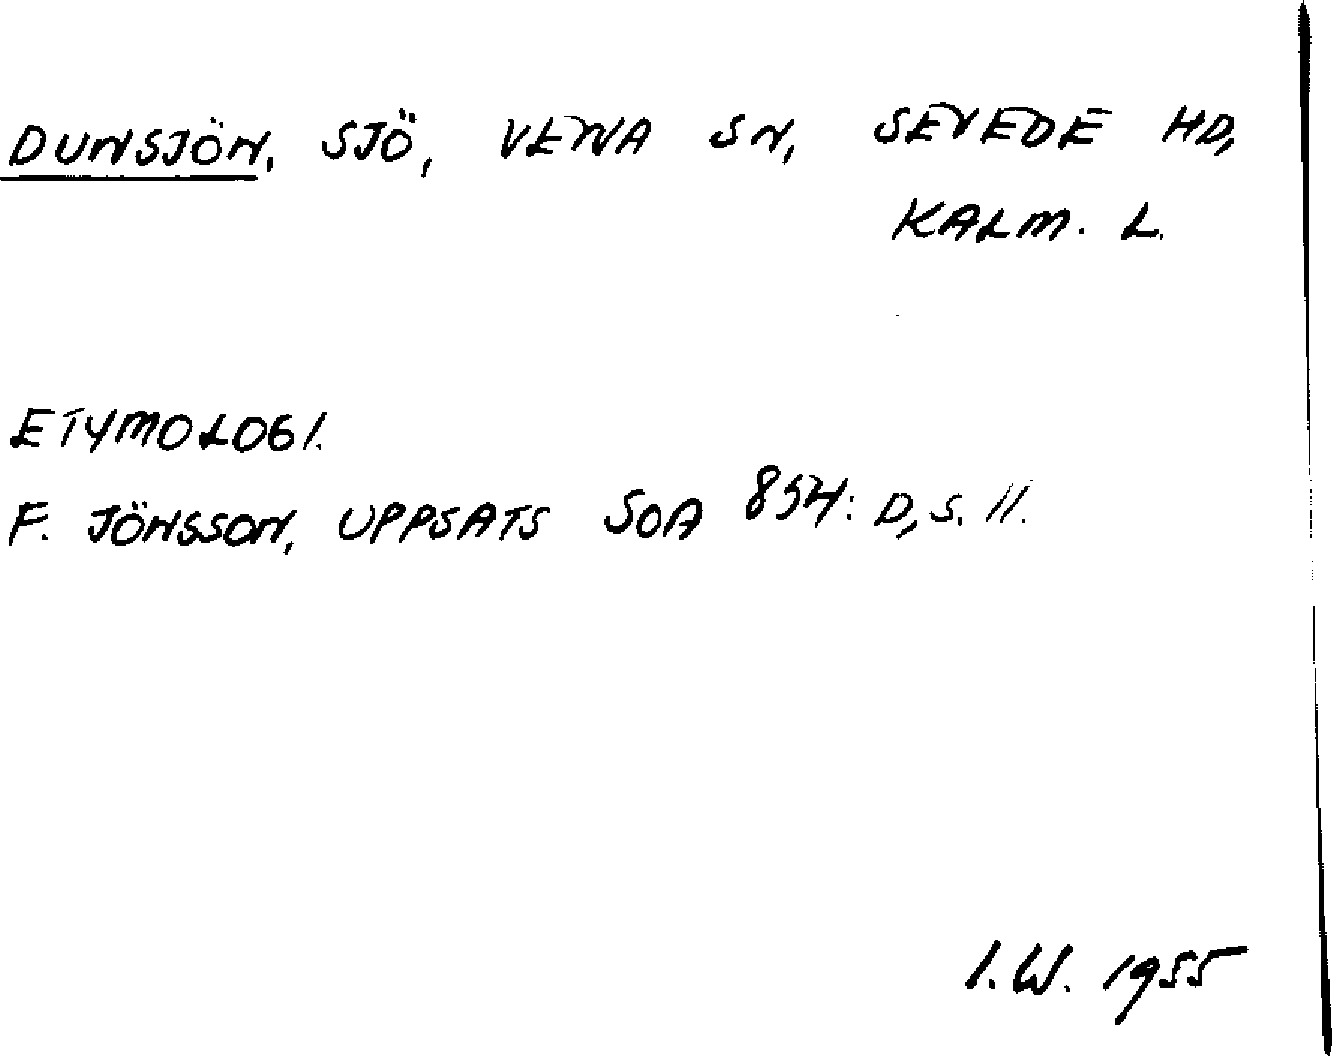 DUNSJÖN, SJÖ, VENA SN, SEVEDE HD,
KALM. L.
ETYMOLOGI.
F. JÖNSSON, UPPSATS SOA 854: D, S. 11.
I.W. 1955